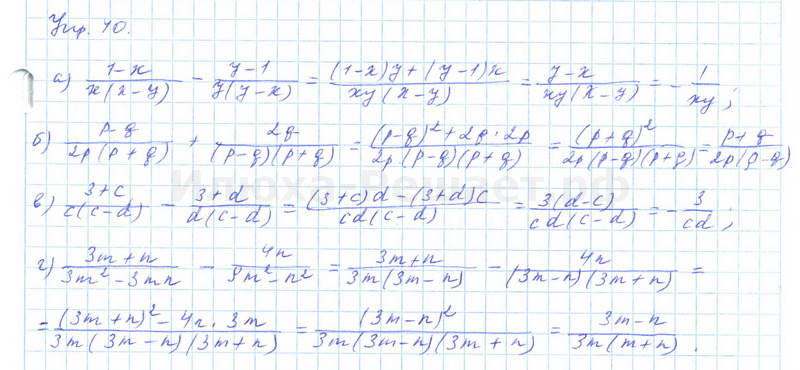 Упр. 40.
а) (1-x)/(x(x-y)) - (y-1)/(y(y-x)) = ((1-x)y+(y-1)x)/(xy(x-y)) = (y-x)/(xy(x-y)) = -1/(xy);
б) (p-q)/(2p(p+q)) + 2q/((p-q)(p+q)) = ((p-q)²+2q·2p)/(2p(p-q)(p+q)) = (p+q)²/(2p(p-q)(p+q)) = (p+q)/(2p(p-q))
в) (3+c)/(c(c-d)) - (3+d)/(d(c-d)) = ((3+c)d-(3+d)c)/(cd(c-d)) = 3(d-c)/(cd(c-d)) = -3/(cd);
г) (3m+n)/(3m²-3mn) - 4n/(9m²-n²) = (3m+n)/(3m(3m-n)) - 4n/((3m-n)(3m+n)) =
= ((3m+n)²-4n·3m)/(3m(3m-n)(3m+n)) = (3m-n)²/(3m(3m-n)(3m+n)) = (3m-n)/(3m(m+n)).